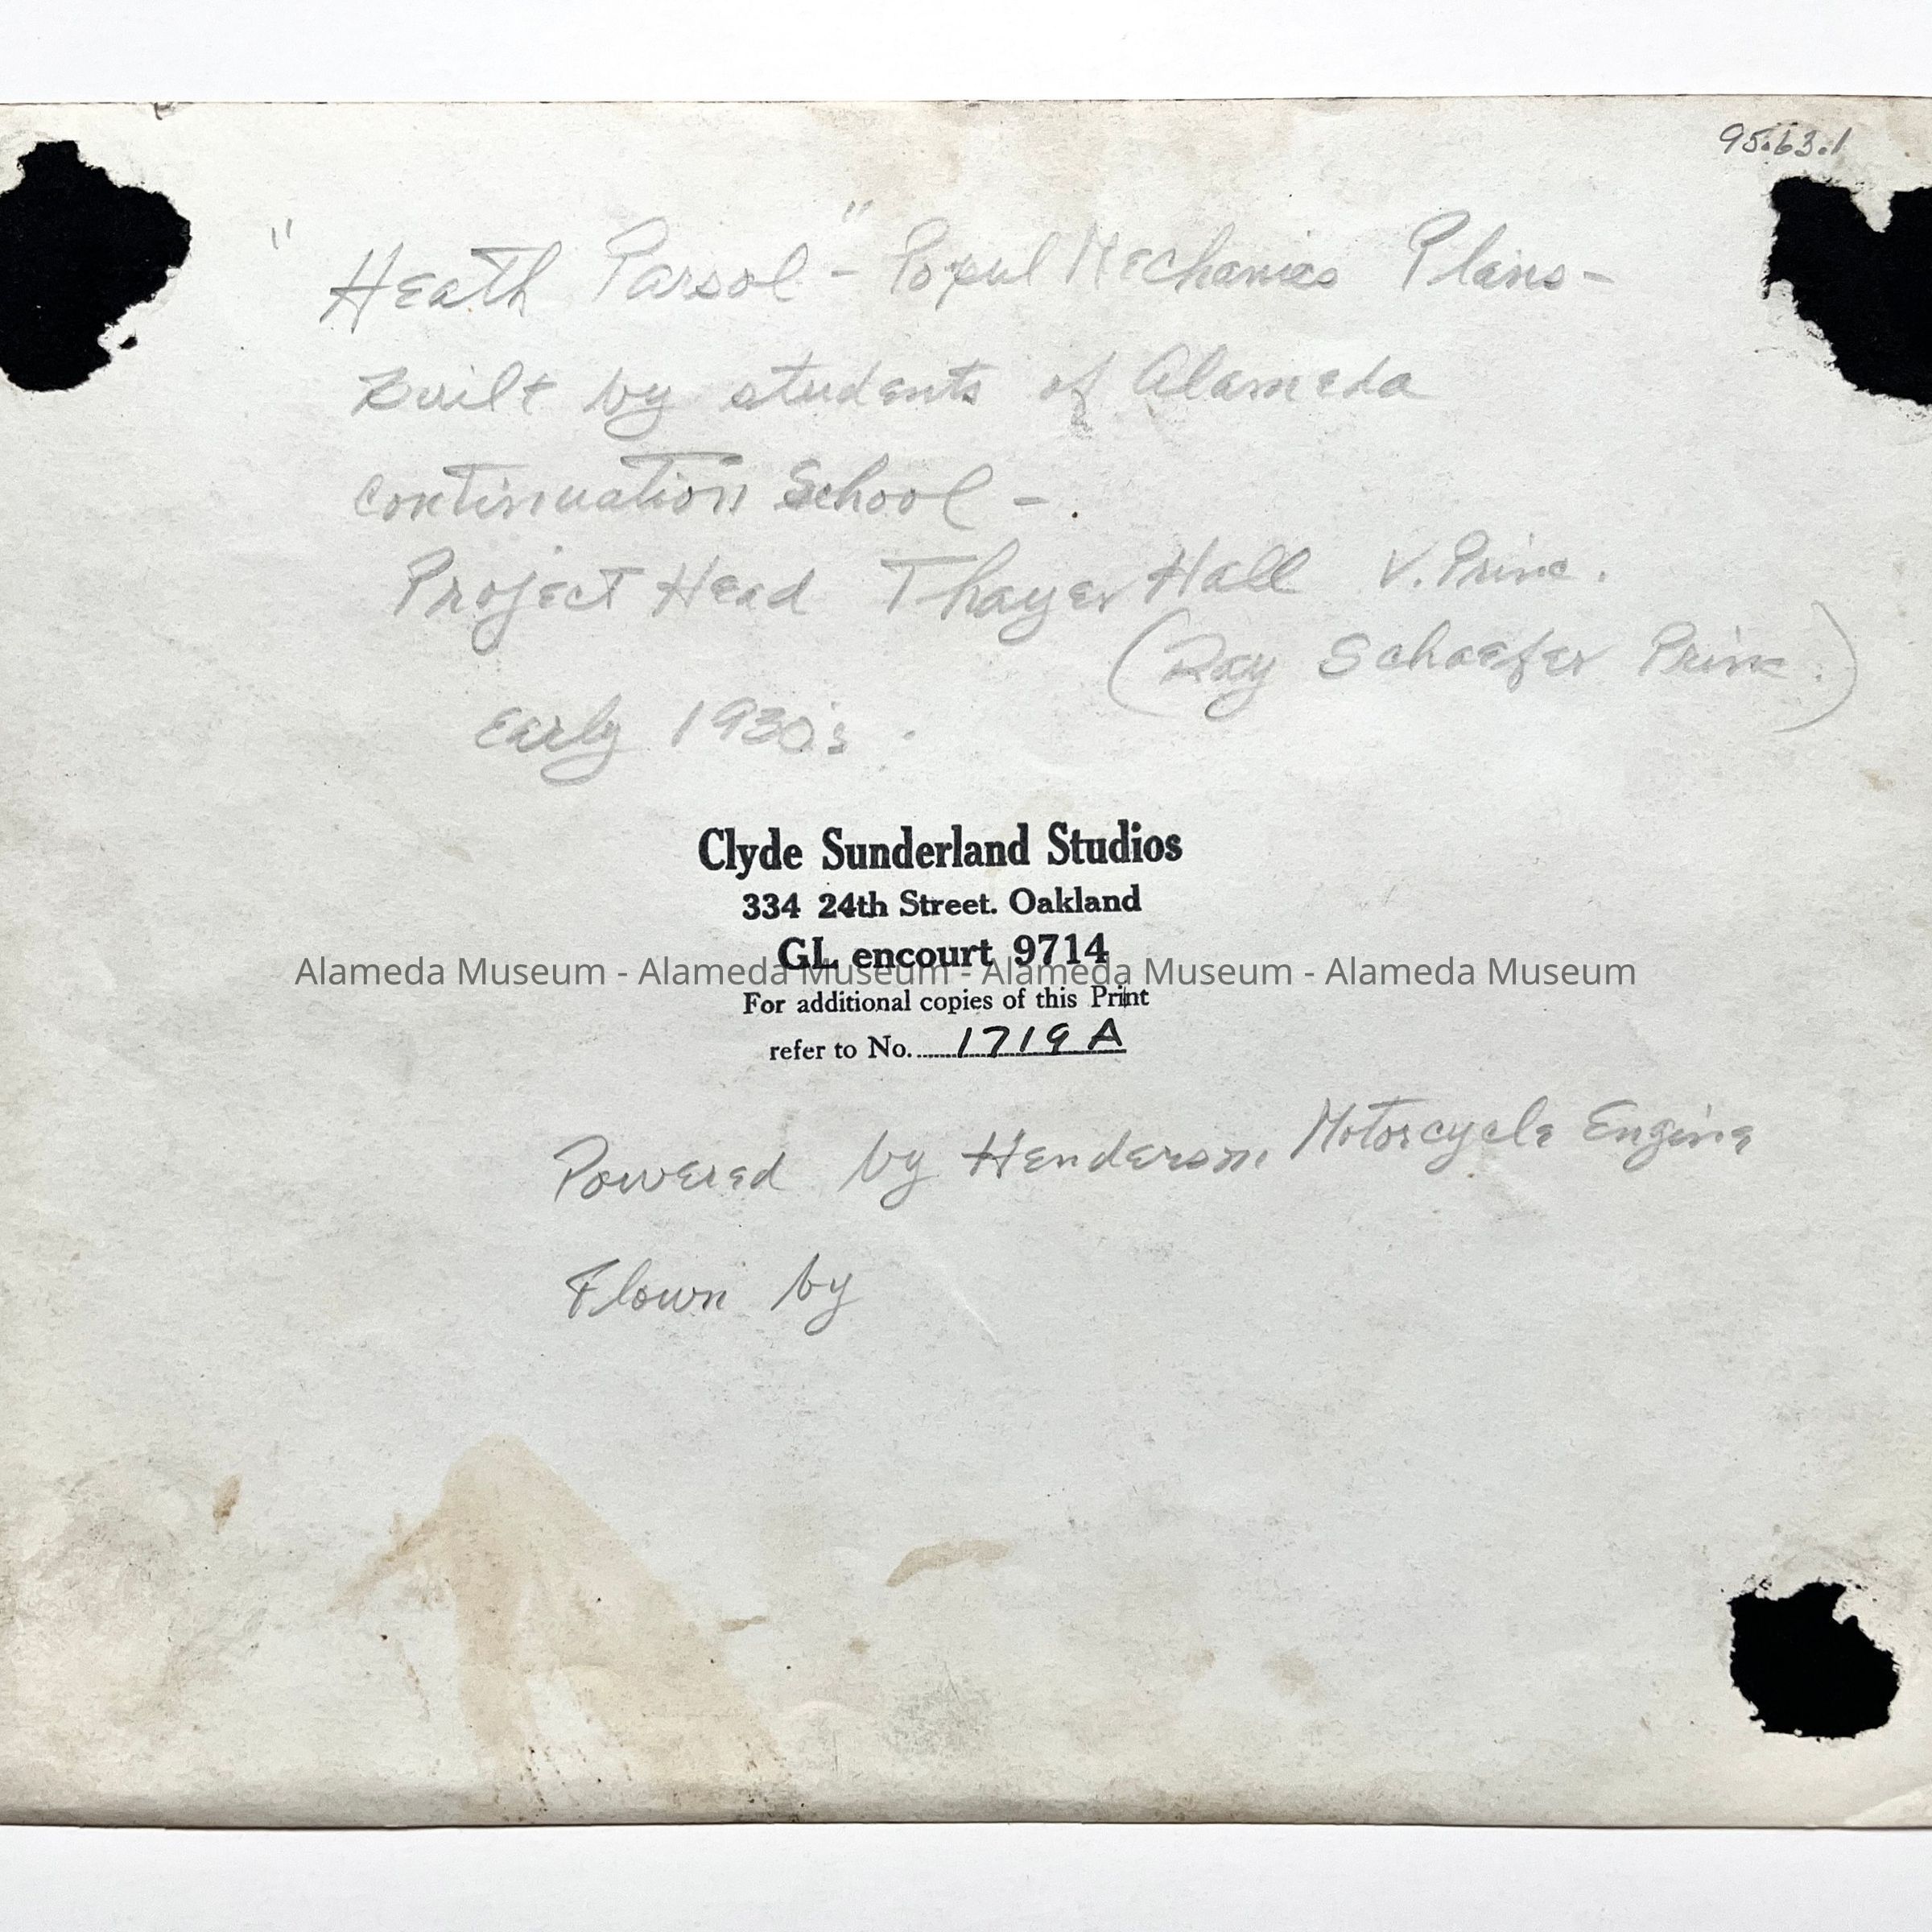 95.63.1
"Heath Parsol" - Popul Mechanics Plans -
Built by students of Alameda
Continuation School -
Project Head Thayer Hall V. Princ.
(Ray Schaefer Princ.)
Early 1930's.
Clyde Sunderland Studios
334 24th Street. Oakland
GL encourt 9714
Alameda Museum - Alameda Museum - Alameda Museum - Alameda Museum
For additional copies of this Print
refer to No. 1719 A
Powered by Henderson Motorcycle Engine
Flown by